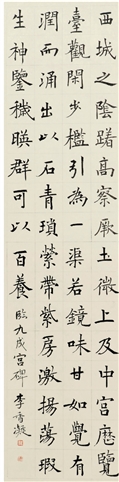 西城之陰躇高察厥土微上及中宮歷覽
臺觀閑步檻引為一渠若鏡味甘如覺有
潤而涌出以石青瑣縈帶紫房激揚蕩瑕
生神鑒穢暎群可以百養 臨九成宮碑 李凝